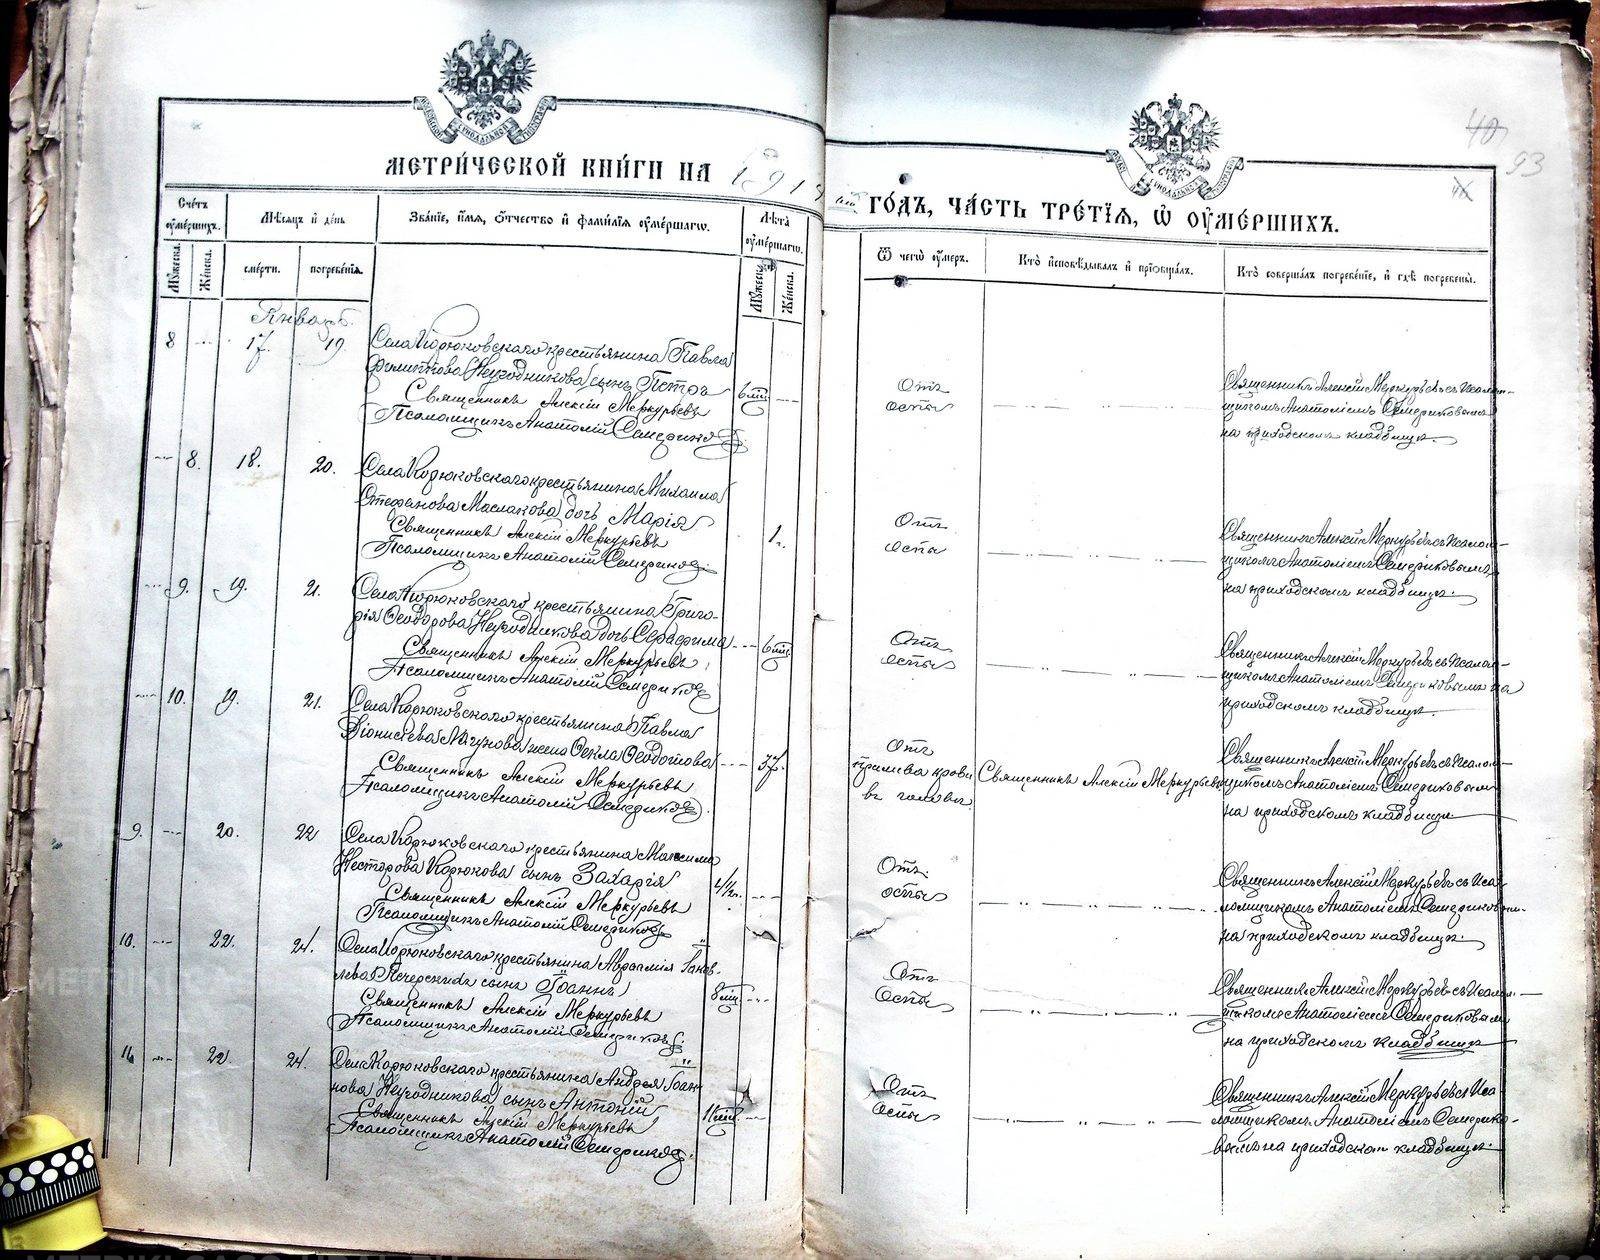 МЕТРИ́ЧЕСКОЙ КНИ́ГИ НА 1914
ый ГО́ДЪ, ЧА́СТЬ ТРЕ́ТІЯ, Ѡ ОУМЕ́РШИХЪ.
40
93
Сче́тъ оуме́ршихъ.
Мѣ́сяцъ и де́нь
Зва́ніе, и́мя, о́тчество и фами́лія оуме́ршагѡ.
Лѣ́та оуме́ршагѡ.
Му́жеска.
Же́нска.
сме́рти.
погребе́нія.
Му́жеск.
Же́нска.
Ѿ чегѡ̀ оу́меръ.
Кто̀ исповѣ́дывалъ и пріобща́лъ.
Кто̀ соверша́лъ погребе́ніе, и гдѣ̀ погребены̀.
Январь.
8 17. 19. Села Корюковскаго крестьянина Павла
Филиппова Неугодникова сынъ Петръ 6 мѣс.
Священникъ Алексій Меркурьевъ
Псаломщикъ Анатолій Семериковъ
Отъ
оспы
Священникъ Алексій Меркурьевъ съ псалом-
щикомъ Анатоліемъ Семериковымъ
на приходскомъ кладбищѣ.
8. 18. 20. Села Корюковскаго крестьянина Михаила
Стефанова Маслакова дочь Марія
Священникъ Алексій Меркурьевъ 1 г.
Псаломщикъ Анатолій Семериковъ
Отъ
оспы
Священникъ Алексій Меркурьевъ съ псалом-
щикомъ Анатоліемъ Семериковымъ
на приходскомъ кладбищѣ.
9. 19. 21. Села Корюковскаго крестьянина Григо-
рія Ѳеодорова Неугодникова дочь Серафима 6 мѣс.
Священникъ Алексій Меркурьевъ
Псаломщикъ Анатолій Семериковъ
Отъ
оспы
Священникъ Алексій Меркурьевъ съ псалом-
щикомъ Анатоліемъ Семериковымъ на
приходскомъ кладбищѣ.
10. 19. 21. Села Корюковскаго крестьянина Павла
Діонисіева жена Ѳекла Ѳеодотова 37.
Священникъ Алексій Меркурьевъ
Псаломщикъ Анатолій Семериковъ
Отъ
прилива крови
въ голову.
Священникъ Алексій Меркурьевъ
Священникъ Алексій Меркурьевъ съ псалом-
щикомъ Анатоліемъ Семериковымъ
на приходскомъ кладбищѣ
9. 20. 22 Села Корюковскаго крестьянина Максима
Несторова Корюкова сынъ Захарія
Священникъ Алексій Меркурьевъ
Псаломщикъ Анатолій Семериковъ
Отъ
оспы
Священникъ Алексій Меркурьевъ съ пса-
ломщикомъ Анатоліемъ Семериковым.
на приходскомъ кладбищѣ.
10. 22. 24. Села Корюковскаго крестьянина Авраамія Іаков-
лева Печерскихъ сынъ Іоаннъ 8 мѣс.
Священникъ Алексій Меркурьевъ
Псаломщикъ Анатолій Семериковъ
Отъ
оспы
Священникъ Алексій Меркурьевъ съ псалом-
щикомъ Анатоліемъ Семериковымъ
на приходскомъ кладбищѣ
11. 22 24. Села Корюковскаго крестьянина Андрея Іоан-
нова Неугодникова сынъ Антоній 11 мѣс.
Священникъ Алексій Меркурьевъ
Псаломщикъ Анатолій Семериковъ
Отъ
оспы
Священникъ Алексій Меркурьевъ съ пса-
ломщикомъ Анатоліемъ Семерико-
вымъ на приходском кладбищѣ.